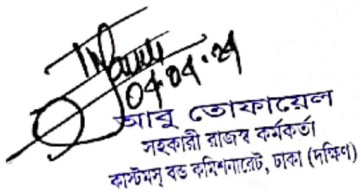 04.04.24
আবু তোফায়েল
সহকারী রাজস্ব কর্মকর্তা
কাস্টমস্ বন্ড কমিশনারেট, ঢাকা (দক্ষিণ)